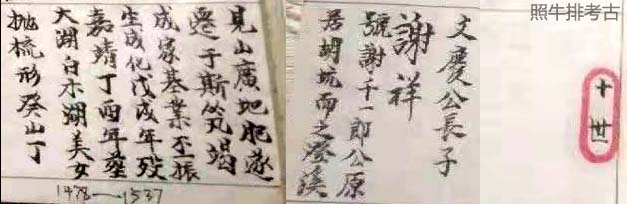 照牛排考古
十世
文慶公長子
謝祥
號謝千一郎公原
居胡坑而之澄溪
見山廣地肥遂
遷于斯筑竭
成家基業丕振
生成化戊戌年殁
嘉靖丁酉年葬
大湖白水湖美女
抛梳形癸山丁
1478—1537